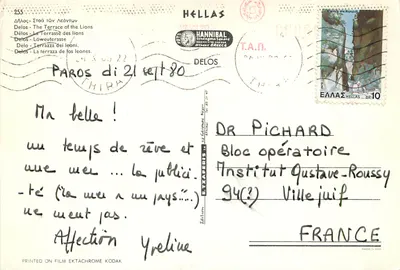 253
Δήλος - Στοά τῶν Λεόντων
Delos - The Terrace of the Lions
Délos - La Terrasse des lions
Delos - Löwenterrasse
Delo - Terrazza dei leoni
Delos - La terraza de los leones
HELLAS
HANNIBAL
DELOS
Τ.Α.Π.
THIRA
ΕΛΛΑΣ HELLAS
10
PAROS di 21 sept 80
Ma belle !
un temps de rêve et
une mer ... la publici-
-té ("la mer a un pays"...)
ne ment pas.
Affection Yveline
DR PICHARD
Bloc opératoire
Institut Gustave-Roussy
94(?) Villejuif
FRANCE
PRINTED ON FILM EKTACHROME KODAK